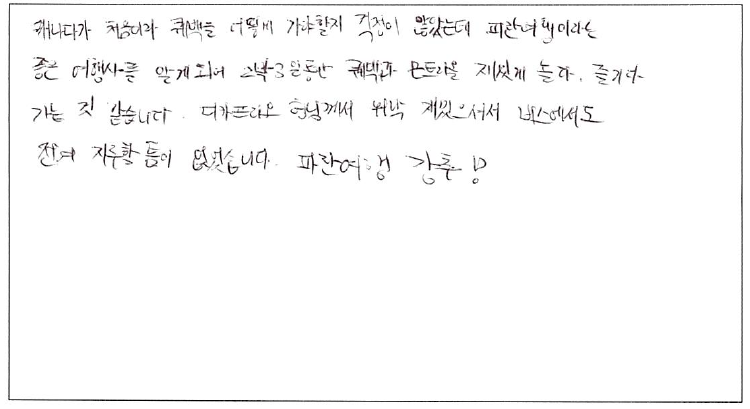 캐나다가 처음이라 퀘백을 어떻게 가야할지 걱정이 많았는데 파란여행이라는
좋은 여행사를 알게되어 2박3일동안 퀘백과 몬트리올을 재밌게 놀다, 즐기다
가는 것 같습니다. 디카프리오 형님께서 워낙 재밌으셔서 버스에서도
전혀 지루할 틈이 없었습니다. 파란여행 강추!